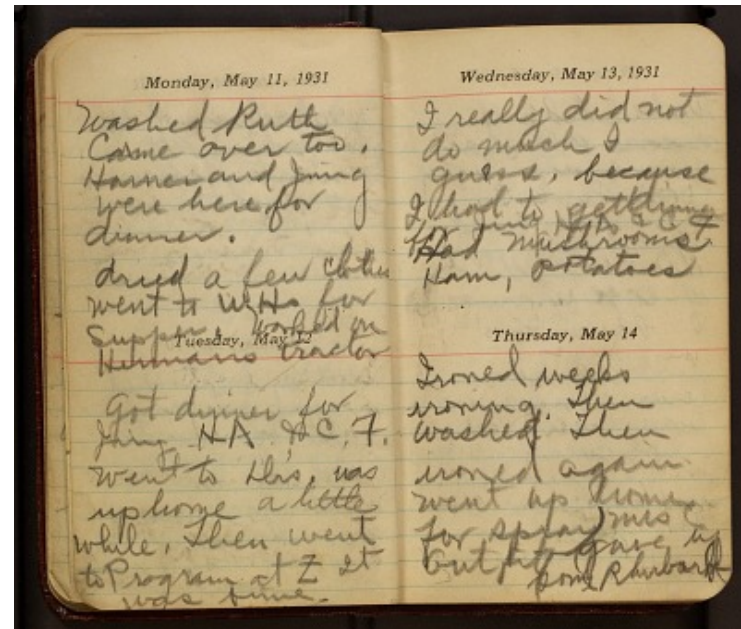 Monday, May 11, 1931
Washed Ruth
Came over too.
Homer and Jim
were here for
dinner.
dried a few clothes
went to for
Supper. worked on
Hermans tractor
Tuesday, May 12
Got dinner for
H A & C, F.
went to was
up home a little
while, Then went
to Program at Z It
was fine.
Wednesday, May 13, 1931
I really did not
do much I
guess, because
I had to get dinner
for
Had mushrooms
Ham, potatoes
Thursday, May 14
Ironed weeks
ironing. Then
washed Then
ironed again
went up home
for spray Mrs C
outfit gave us
some Rhubarb